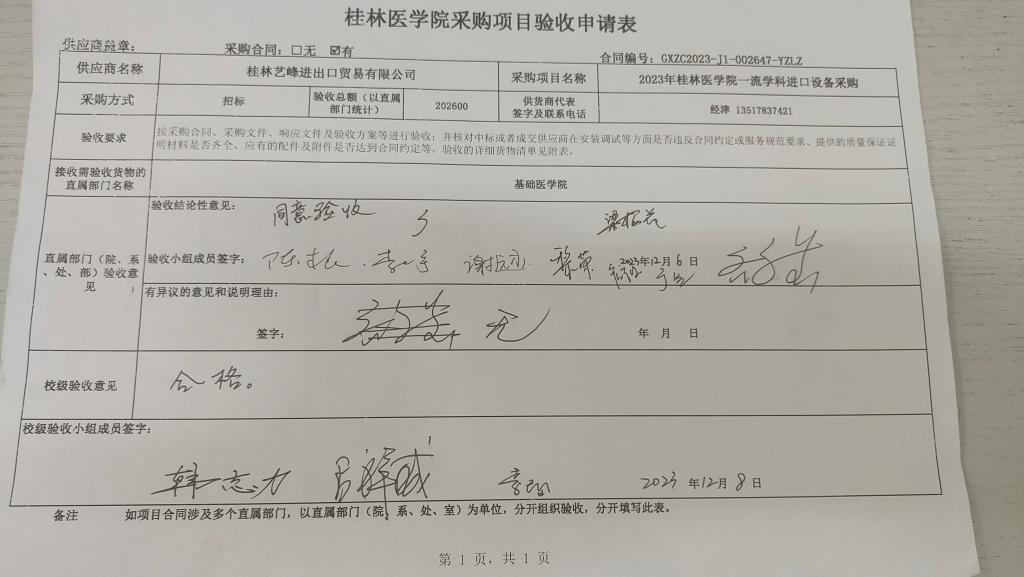 桂林医学院采购项目验收申请表
供应商盖章： 采购合同：□无 ☑有 合同编号：GXZC2023-J1-002647-YZLZ
供应商名称 桂林艺峰进出口贸易有限公司 采购项目名称 2023年桂林医学院一流学科进口设备采购
采购方式 招标 验收总额（以直属部门统计） 202600 供货商代表签字及联系电话 经津 13517837421
验收要求
按采购合同、采购文件、响应文件及验收方案等进行验收；并核对中标或者成交供应商在安装调试等方面是否违反合同约定或服务规范要求、提供的质量保证证
明材料是否齐全、应有的配件及附件是否达到合同约定等。验收的详细货物清单见附表。
接收需验收货物的
直属部门名称
基础医学院
直属部门（院、系
、处、部）验收意
见
验收结论性意见： 同意验收
验收小组成员签字： 2023年12月6日
有异议的意见和说明理由：
签字： 无 年 月 日
校级验收意见 合格。
校级验收小组成员签字：
韩志力 2023年12月8日
备注 如项目合同涉及多个直属部门，以直属部门（院、系、处、室）为单位，分开组织验收，分开填写此表。
第 1 页，共 1 页